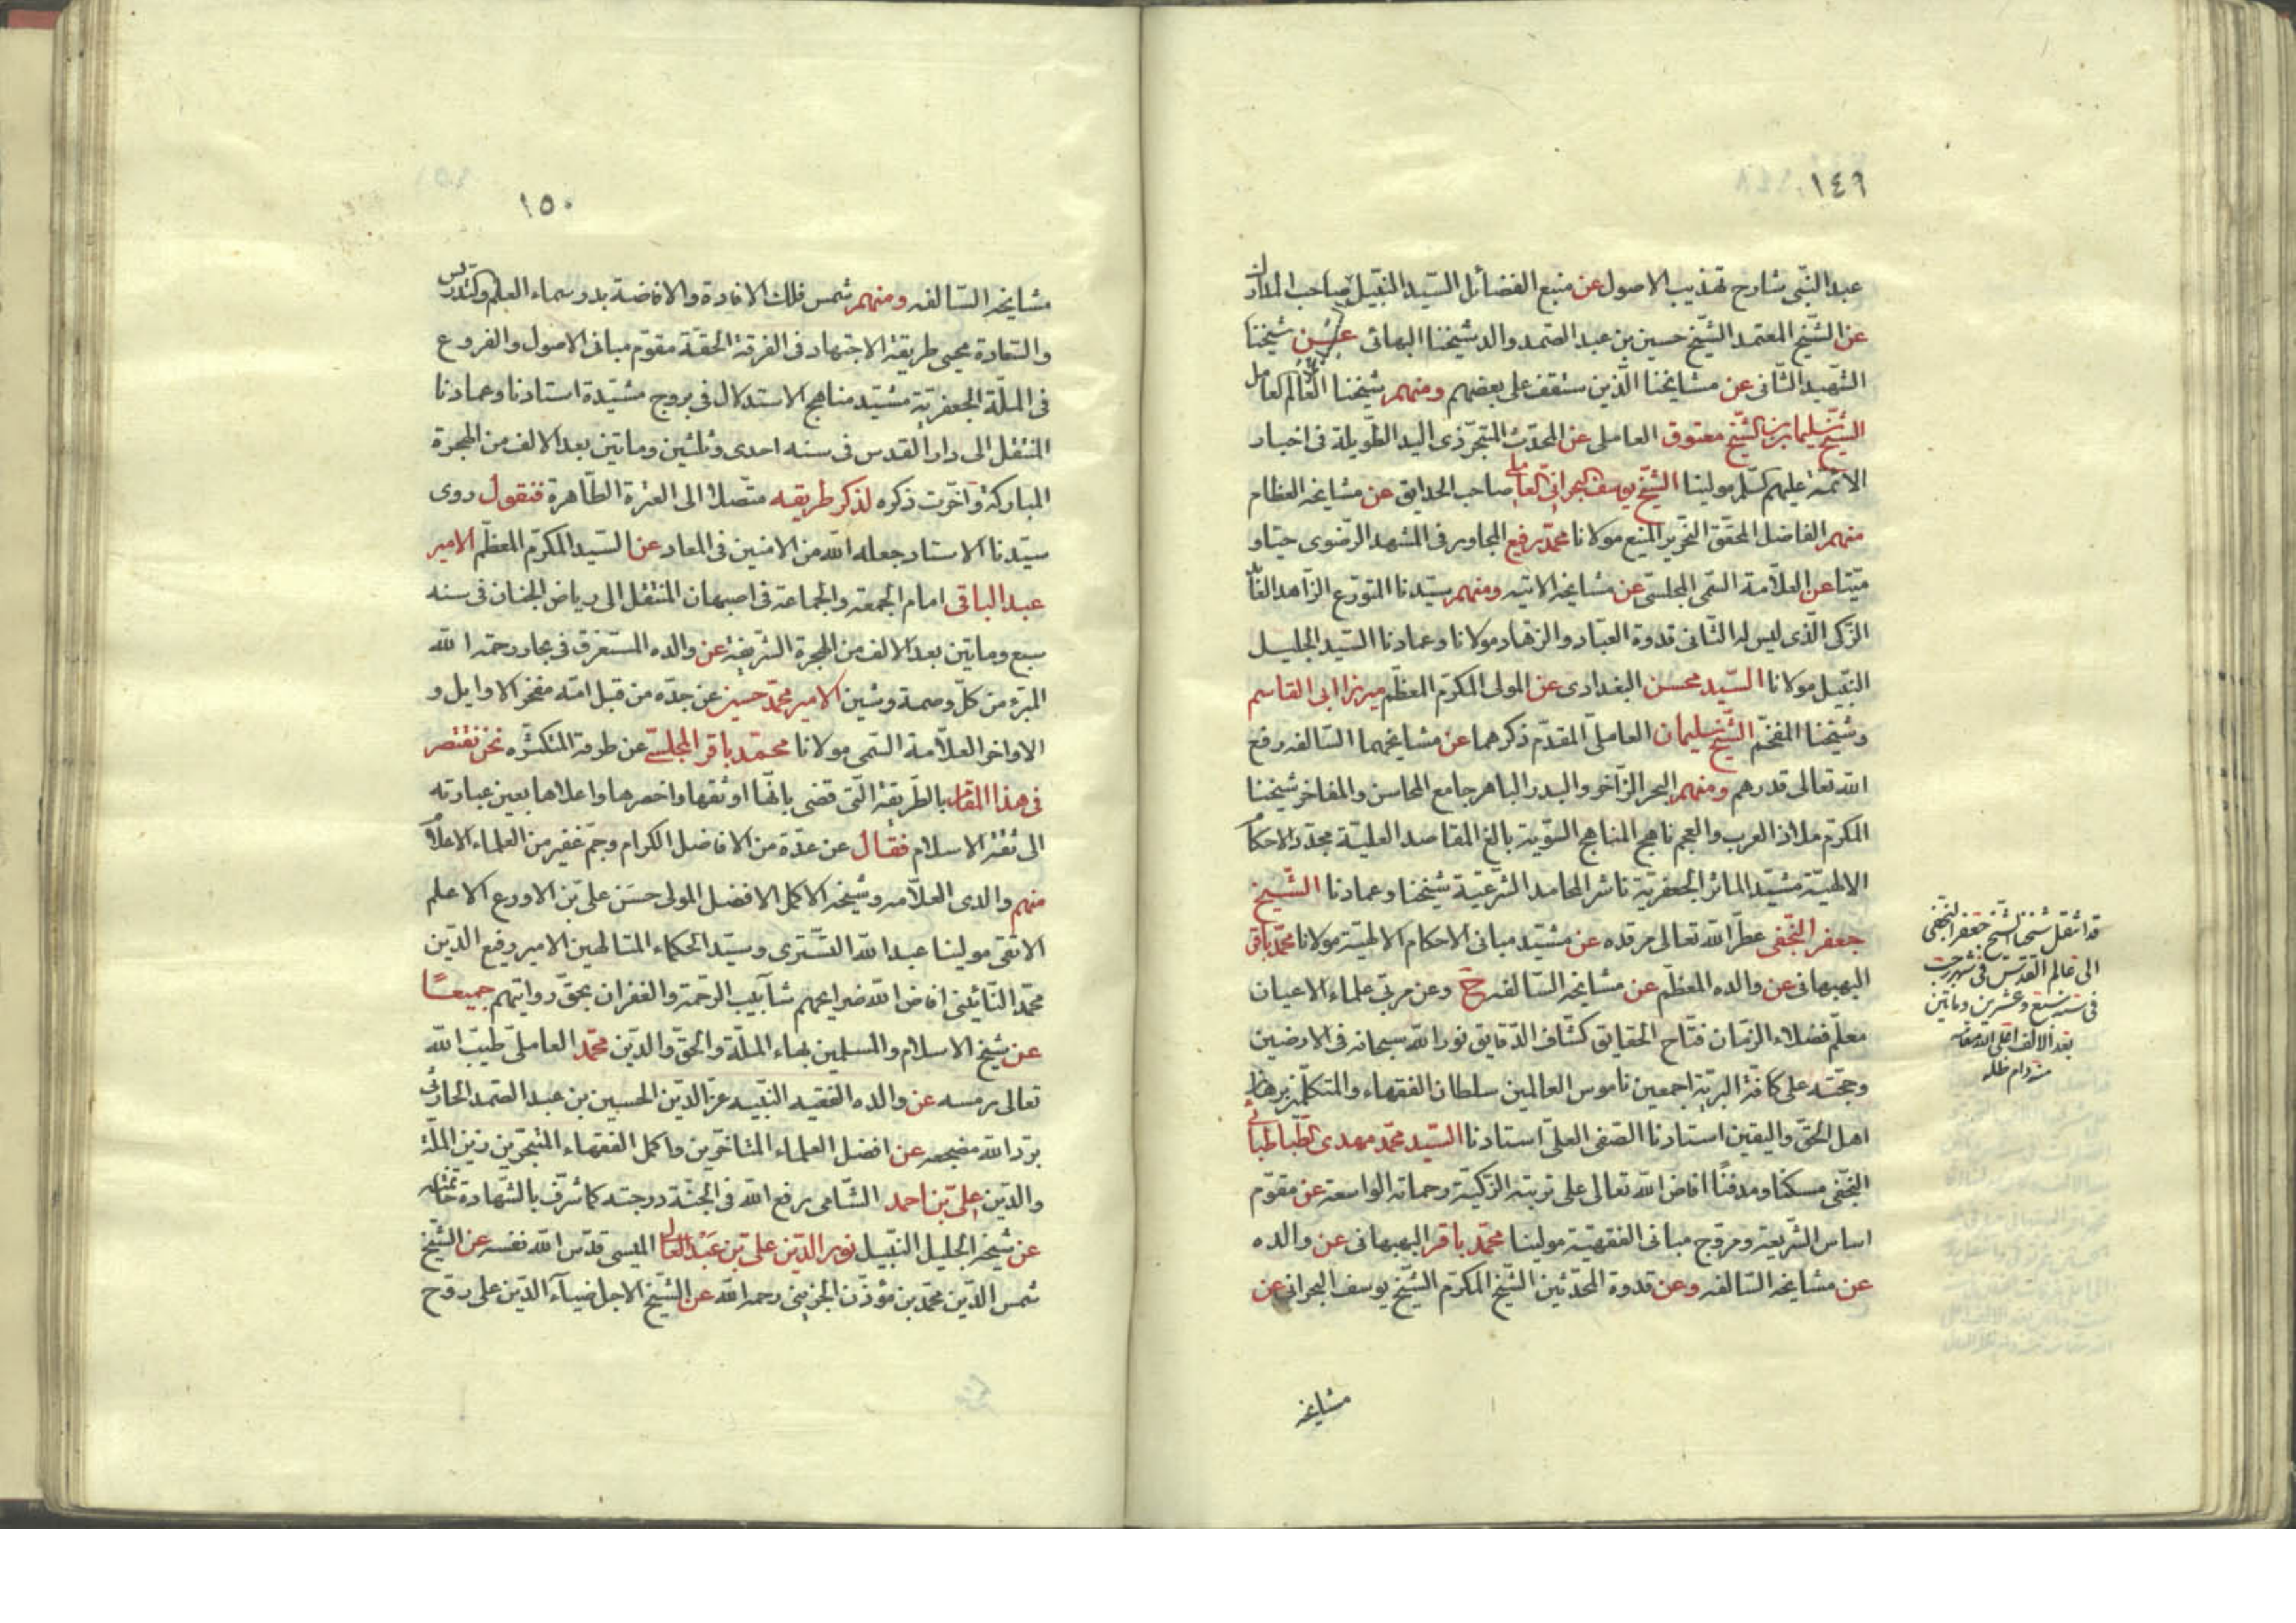 ١٤٩
عبد النّبي شارح تهذيب الاصول عن منبع الفضائل السّيد النّبيل صاحب المدارك
عن الشّيخ المعتمد الشّيخ حسين بن عبد الصّمد والد شيخنا البهائى عن شيخنا
الشّهيد الثّانى عن مشايخنا الّذين ستقف على بعضهم ومنهم شيخنا العالم العامل
الشّيخ سليمان بن الشّيخ معتوق العاملى عن المحدّث المتبحّر ذى اليد الطّويلة فى اخبار
الائمّة عليهم السّلم مولينا الشّيخ يوسف البحرانىّ صاحب الحدايق عن مشايخه العظام
منهم الفاضل المحقّق النّحرير المنيع مولانا محمّد رفيع المجاور فى المشهد الرّضوى حيّا و
ميّتا عن العلّامة السّمى المجلسّى عن مشايخه الاتيه ومنهم سيّدنا المتورّع الزّاهد
الزّكى الّذى ليس له الثّانى قدوة العبّاد والزهّاد مولانا وعمادنا السّيد الجليل
النّبيل مولانا السّيد محسن البغدادى عن المولى المكرّم المعظّم ميرزا ابى القاسم
وشيخنا المفخّم الشّيخ سليمان العاملىّ المقدّم ذكرهما عن مشايخهما السّالفه رفع
الله تعالى قدرهم ومنهم البحر الزّاخر والبدر الباهر جامع المحاسن والمفاخر شيخنا
المكرّم ملاذ العرب والعجم ناهج المناهج السّويّة بالغ المقاصد العليّة مجدّد الاحكام
الالهيّة مشيّد الماثر الجعفريّة ناشر المحامد الشّرعيّة شيخنا وعمادنا الشّيخ
جعفر النّجفى عطّر الله تعالى مرقده عن مشيّد مبانى الاحكام الالهيّة مولانا محمّد باقر
البهبهانى عن والده المعظّم عن مشايخه السّالفه ح وعن مربّى علماء الاعيان
معلّم فضلاء الزّمان فتّاح الحقايق كشّاف الدّقايق نور الله سبحانه فى الارضين
وحجّته على كافّة البريّة اجمعين ناموس العالمين سلطان الفقهاء والمتكلّمين برهان
اهل الحقّ واليقين استادنا الصّفى العلىّ استادنا السّيد محمّد مهدى الطّباطبائى
النّجفى مسكنا ومدفنًا افاض الله تعالى على تربته الزّكيّة رحماته الواسعة عن مقوّم
اساس الشّريعة ومروّج مبانى الفقهيّة مولينا محمّد باقر البهبهانى عن والده
عن مشايخه السّالفه وعن قدوة المحدّثين الشّيخ المكرّم الشّيخ يوسف البحرانى عن
مشايخه
قد انتقل شيخنا الشّيخ جعفر النّجفى
الى عالم القدس فى شهر رجب
فى سنة سبع وعشرين وماتين
بعد الالف اعلى الله مقامه
منه دام ظله
١٥٠
مشايخه السّالفه ومنهم شمس فلك الافادة والافاضة بدر سماء العلم والتدريس
والسّعادة محيى طريقة الاجتهاد فى الفرقة الحقّة مقوّم مبانى الاصول والفروع
فى الملّة الجعفريّة مشيّد مناهج الاستدلال فى بروج مشيّدة استادنا وعمادنا
المنتقل الى دار القدس فى سنه احدى وثلثين وماتين بعد الالف من الهجرة
المباركة وآخّرت ذكره لذكر طريقه متّصلا الى العترة الطّاهرة فنقول روى
سيّدنا الاستاد جعله الله من الامنين فى المعاد عن السّيد المكرّم المعظّم الامير
عبد الباقى امام الجمعة والجماعة فى اصبهان المنتقل الى رياض الجنان فى سنه
سبع وماتين بعد الالف من الهجرة الشّريفة عن والده المستغرق فى بحار رحمة الله
المبرّء من كلّ وصمة وشين الامير محمّد حسين عن جدّه من قبل امّه مفخر الاوايل و
الاواخر العلّامة السّمى مولانا محمّد باقر المجلسّى عن طرقه المتكثّره نحن نقتصر
فى هذا المقام بالطّريقة الّتى قضى بانّها اوثقها واخصرها واعلاها بعين عبارته
الى ثقة الاسلام فقال عن عدّة من الافاضل الكرام وجمّ غفير من العلماء الاعلام
منهم والدى العلّامه وشيخه الاكمل الافضل المولى حسن علىّ بن الاورع الاعلم
الاتقى مولينا عبد الله التّسترى وسيّد الحكماء المتالهين الامير رفيع الدّين
محمّد النّائينى افاض الله ضرايحهم شآبيب الرّحمة والغفران بحقّ روايتهم جميعًا
عن شيخ الاسلام والمسلمين بهاء الملّة والحقّ والدّين محمّد العاملىّ طيّب الله
تعالى رمسه عن والده الفقيه النّبيه عزّ الدّين الحسين بن عبد الصّمد الحارثى
برّد الله مضجعه عن افضل العلماء المتاخّرين واكمل الفقهاء المتبحّرين زين الملّة
والدّين علىّ بن احمد الشّامى رفع الله فى الجنّة درجته كما شرّف بالشّهادة خاتمته
عن شيخه الجليل النّبيل نور الدّين علىّ بن عبد العالى الميسى قدّس الله نفسه عن الشّيخ
شمس الدّين محمّد بن مؤذّن الجزينى رحمه الله عن الشّيخ الاجل ضيآء الدّين على روّح